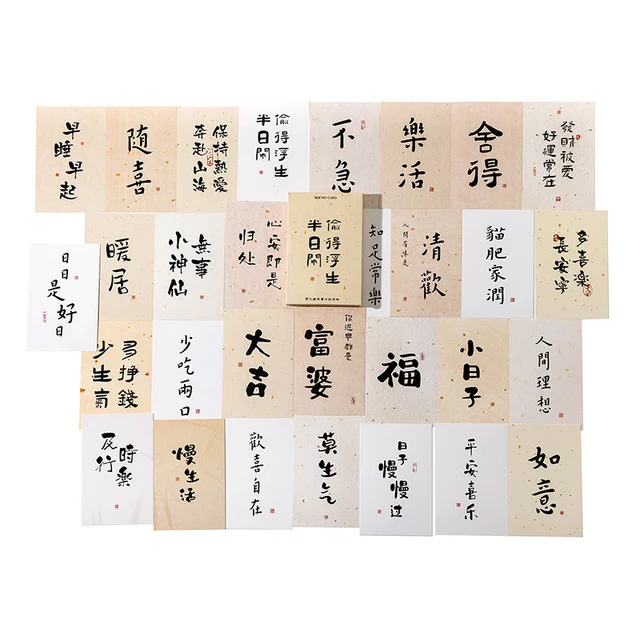 早睡早起
随喜
保持熱愛
奔赴山海
偷得浮生
半日閑
不急
樂活
舍得
發財被愛
好運常在
日日是好日
暖居
無事
小神仙
心安即是
归处
偷得浮生
半日閑
知足常樂
人間有味是
清歡
貓肥家潤
多喜樂
長安寧
多掙錢
少生氣
少吃兩口
大吉
你迟早都是
富婆
福
小日子
人間理想
及時行樂
慢生活
歡喜自在
莫生气
日子
慢慢过
平安喜乐
如意